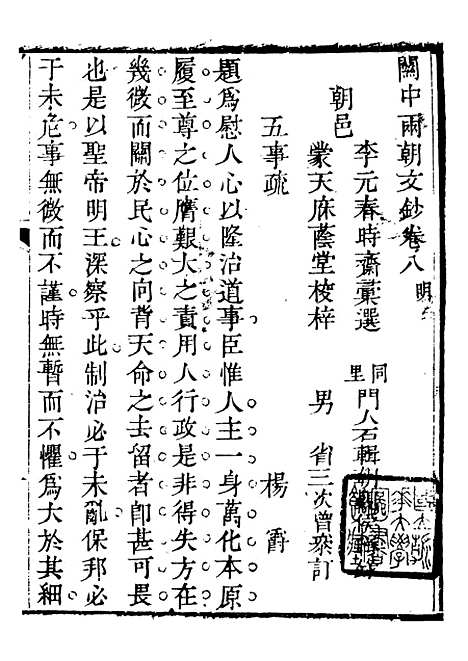 關中兩朝文鈔卷八 明
朝邑
李元春時齋彙選
蒙天庥蔭堂校梓
同里
門人石輯
男 省三次曾參訂
五事疏 楊爵
題爲慰人心以隆治道事臣惟人主一身萬化本原
履至尊之位膺艱大之責用人行政是非得失方在
幾微而關於民心之向背天命之去留者卽甚可畏
也是以聖帝明王深察乎此制治必于未亂保邦必
于未危事無微而不謹時無暫而不懼爲大於其細